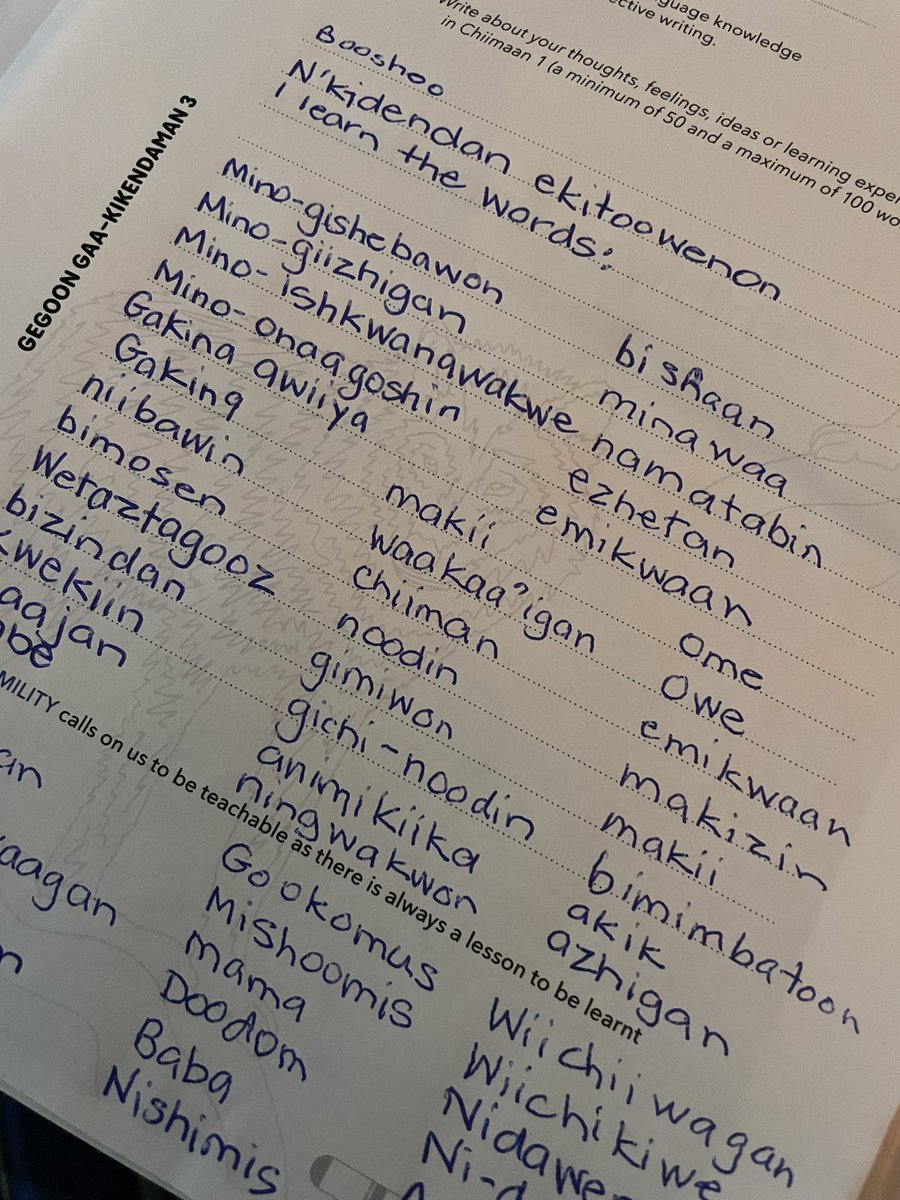 guage knowledge
ective writing.
Write about your thoughts, feelings, ideas or learning exper
in Chiimaan 1 (a minimum of 50 and a maximum of 100 wo
GEGOON GAA-KIKENDAMAN 3
Booshoo
N'kidendan ekitoowenon
I learn the words:
Mino-gishebawon
Mino-giizhigan
Mino-ishkwanawakwe
Mino-onagoshin
Gakina awiiya
Gakina
niibawin
bimosen
Wetaztagooz
bizindan
kwekiin
aajan
mbe
bishaan
minawaa
namatabin
ezhetan
emikwaan
makii
waakaa'igan
chiiman
noodin
gimiwon
gichi-noodin
animikiika
ningwakwon
ome
owe
emikwaan
makizin
makii
bimimbatoon
akik
azhigan
MILITY calls on us to be teachable as there is always a lesson to be learnt
an
aagan
n
Gookomus
Mishoomis
mama
Doodom
Baba
Nishimis
Wiichiiwagan
Wiichikiwe
Nidawe
Ni-d